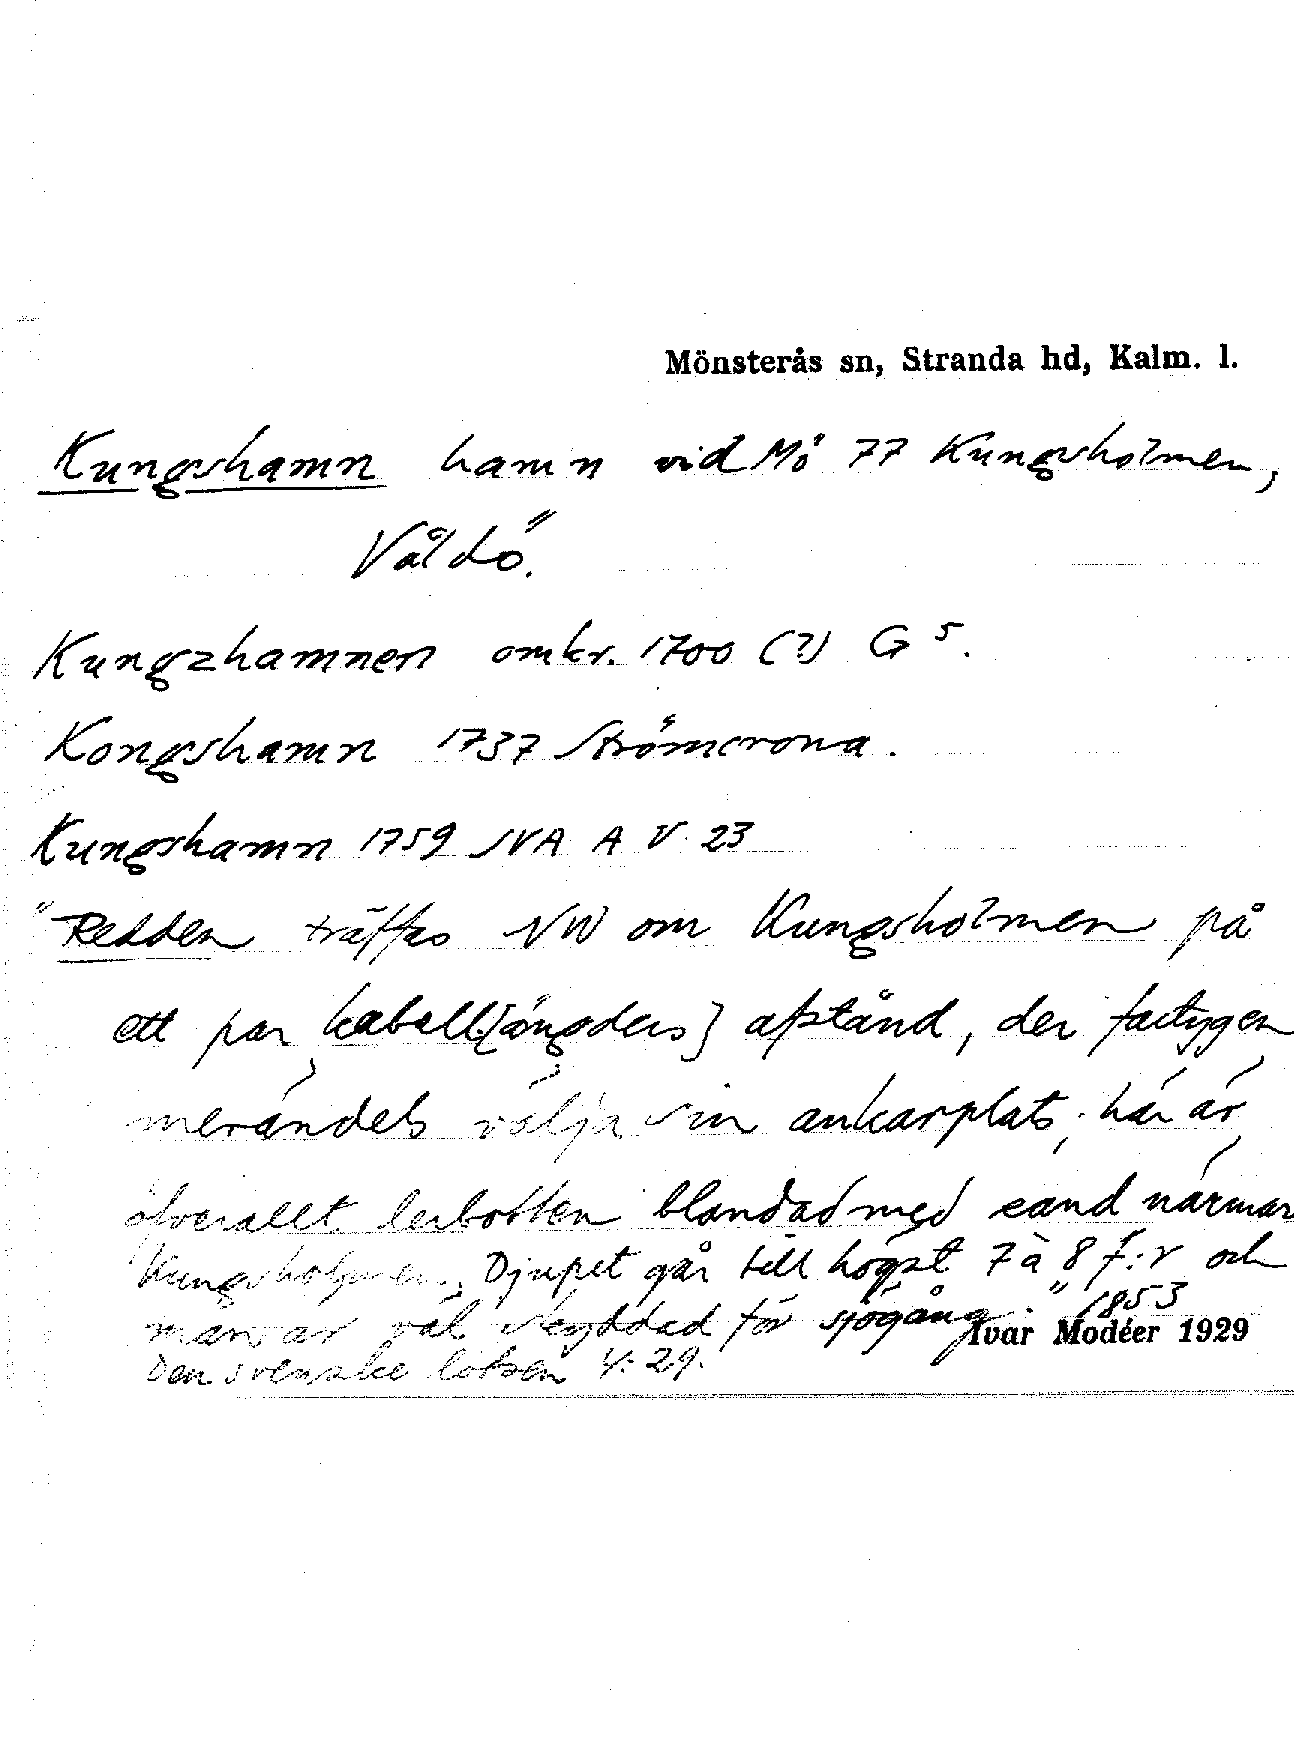 Mönsterås sn, Stranda hd, Kalm. l.
Kungshamn hamn vid Mö 77 Kungsholmen,
Våldö.
Kungzhamnen omkr. 1700 (?) G 5.
Kongshamn 1737 Strömcrona.
Kungshamn 1759 SVA A V 23
"Redden träffas NW om Kungsholmen på
ett par kabell[ängders] afstånd, der fartygen
merändels välja sin ankarplats; här är
öfverallt lerbotten blandad med sand närmar
Kungsholmen. Djupet går till högst 7 à 8 f:r och
man är väl skyddad för sjögång." 1853
Den svenske lotsen 4:29.
Ivar Modéer 1929